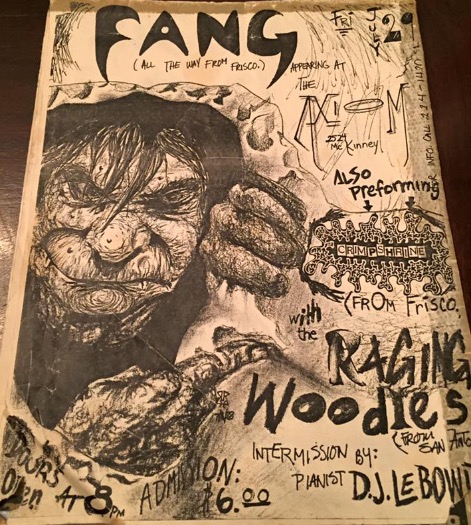 FANG
(ALL THE WAY FROM FRISCO.)
FRI
JULY
29
APPEARING AT
THE
AXIOM
2524
McKinney
ALSO
Preforming
CRIMPSHRINE
(FROM FRISCO.
with
the
RAGING
Woodies
(FROM
SAN ANTO
INTERMISSION BY:
PIANIST D.J. LEBOW
DOORS
OPEN AT 8PM
ADMISSION:
$6.00